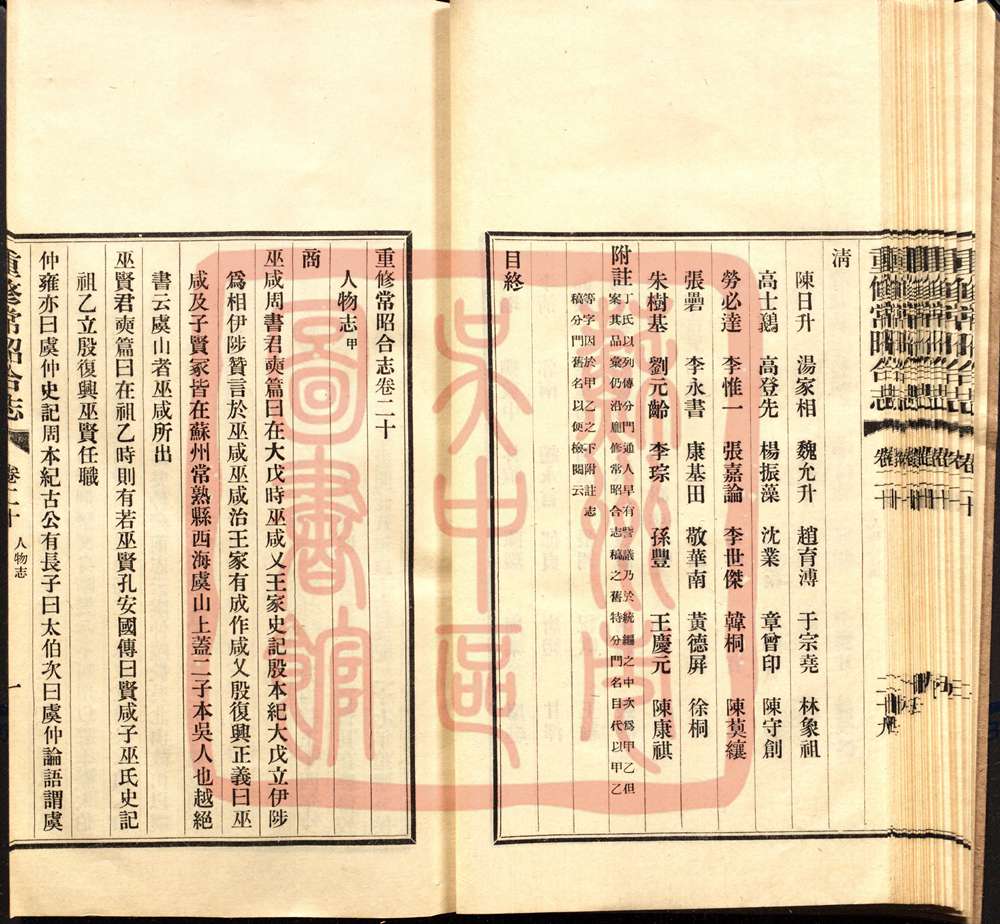 清
陳日升　湯家相　魏允升　趙育溥　于宗堯　林象祖
高士鸃　高登先　楊振藻　沈業　章曾印　陳守創
勞必達　李惟一　張嘉論　李世傑　韓桐　陳萸纕
張礨　李永書　康基田　敬華南　黃德屏　徐桐
朱樹基　劉元齡　李琮　孫豐　王慶元　陳康祺
附註
丁氏以列傳分門通人早有訾議乃於統編之中次爲甲乙但
案其品彙仍沿龐修常昭合志稿之舊特分門名目代以甲乙
等字因於甲乙之下附註志
稿分門舊名以便檢閱云
目終
重修常昭合志
重修常昭合志卷二十
人物志甲
商
巫咸周書君奭篇曰在大戊時巫咸乂王家史記殷本紀大戊立伊陟
爲相伊陟贊言於巫咸巫咸治王家有成作咸乂殷復興正義曰巫
咸及子賢冢皆在蘇州常熟縣西海虞山上蓋二子本吳人也越絕
書云虞山者巫咸所出
巫賢君奭篇曰在祖乙時則有若巫賢孔安國傳曰賢咸子巫氏史記
祖乙立殷復興巫賢任職
仲雍亦曰虞仲史記周本紀古公有長子曰太伯次曰虞仲論語謂虞
重修常昭合志
卷二十
人物志
一
吳中區
圖書館